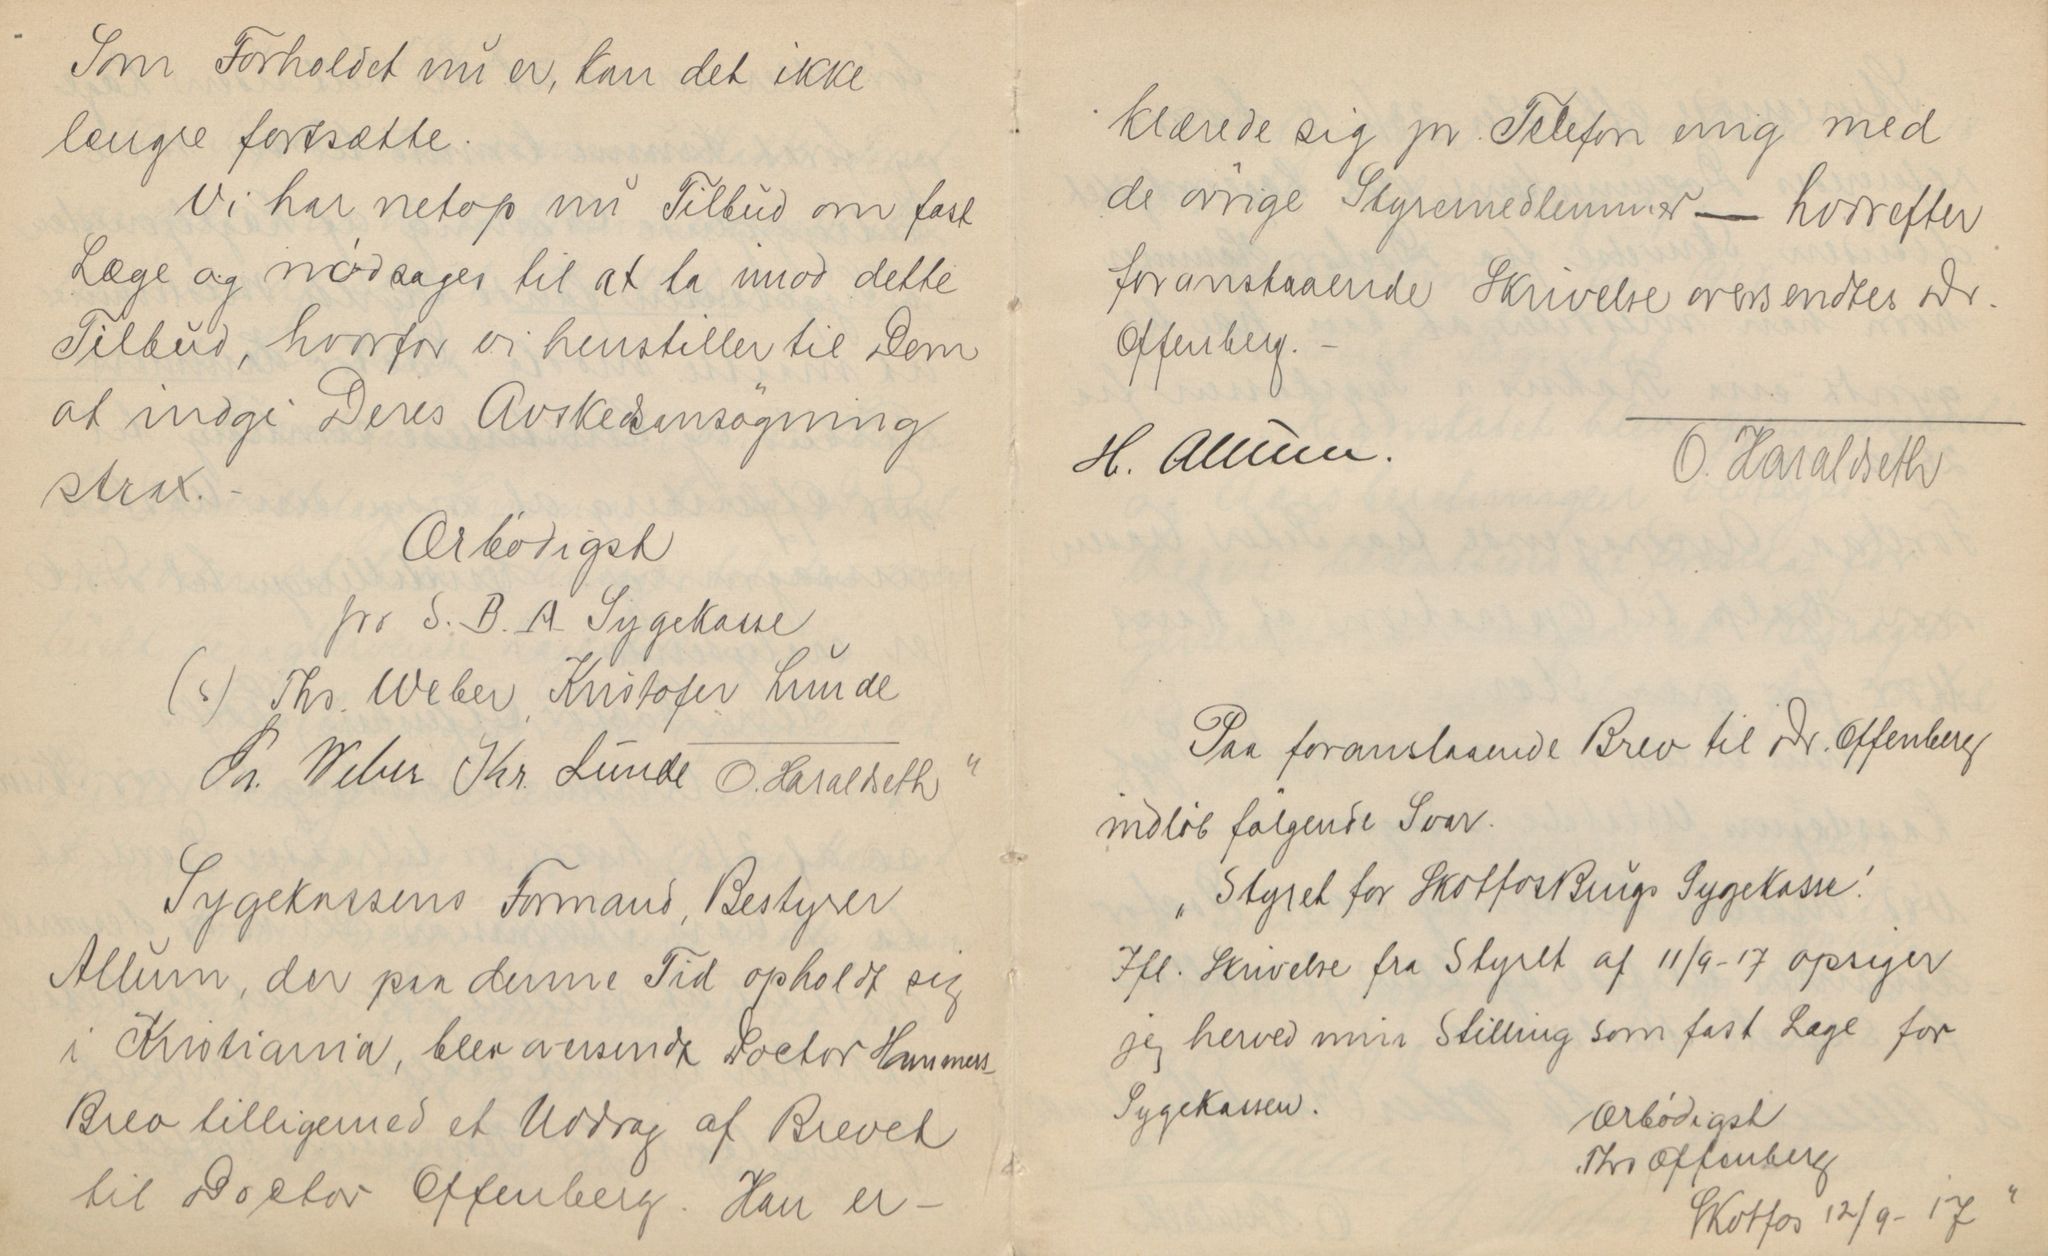 Som Forholdet nu er, kan det ikke
længre fortsætte.
Vi har netop nu Tilbud om fast
Læge og nødsages til at ta imod dette
Tilbud, hvorfor vi henstiller til Dem
at indgi Deres Avskedsansøgning
strax. -
Ærbødigst
pro S. B. A. Sygekasse
(s) Ths. Weber, Kristofer Lunde
Th. Weber Kr. Lunde O. Haraldseth "
Sygekassens Formand, Bestyrer
Allum, der paa denne Tid opholdt sig
i Kristiania, blev oversendt Doctor Hammers
Brev tilligemed et Uddrag af Brevet
til Doctor Offenberg. Han er-
klærede sig pr. Telefon enig med
de øvrige Styremedlemmer — hvorefter
foranstaaende Skrivelse oversendtes Dr.
Offenberg. -
H. Allum. O. Haraldseth
Paa foranstaaende Brev til Dr. Offenberg
indløb følgende Svar.
„Styret for Skotfos Brugs Sygekasse!
Ifl. Skrivelse fra Styret af 11/9-17 opsiger
jeg herved min Stilling som fast Læge for
Sygekassen.
Ærbødigst
Ths Offenberg
Skotfos 12/9-17 "